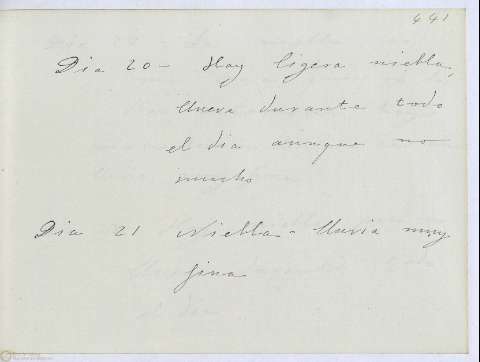 441
Dia 20 - Hay ligera niebla,
llueve durante todo
el dia aunque no
mucho
Dia 21 Niebla - lluvia muy
fina